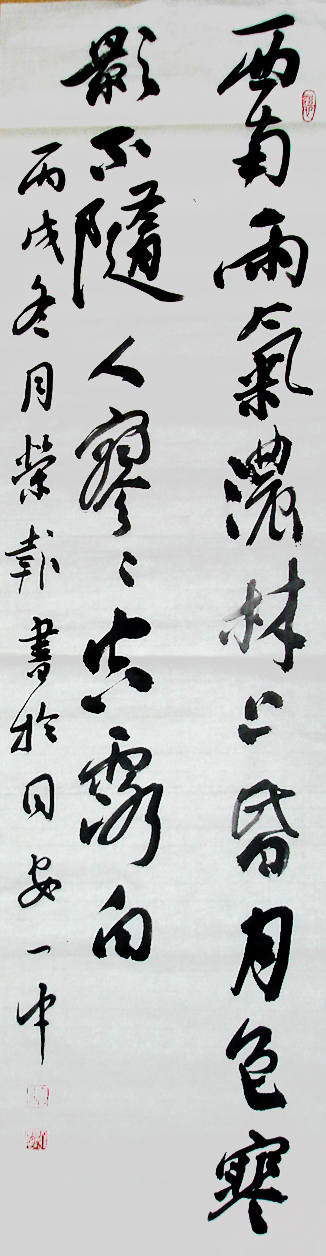 西南雨氣濃林上昏月色寒
影不隨人寥〻空露白
丙戌冬月榮報書於同安一中